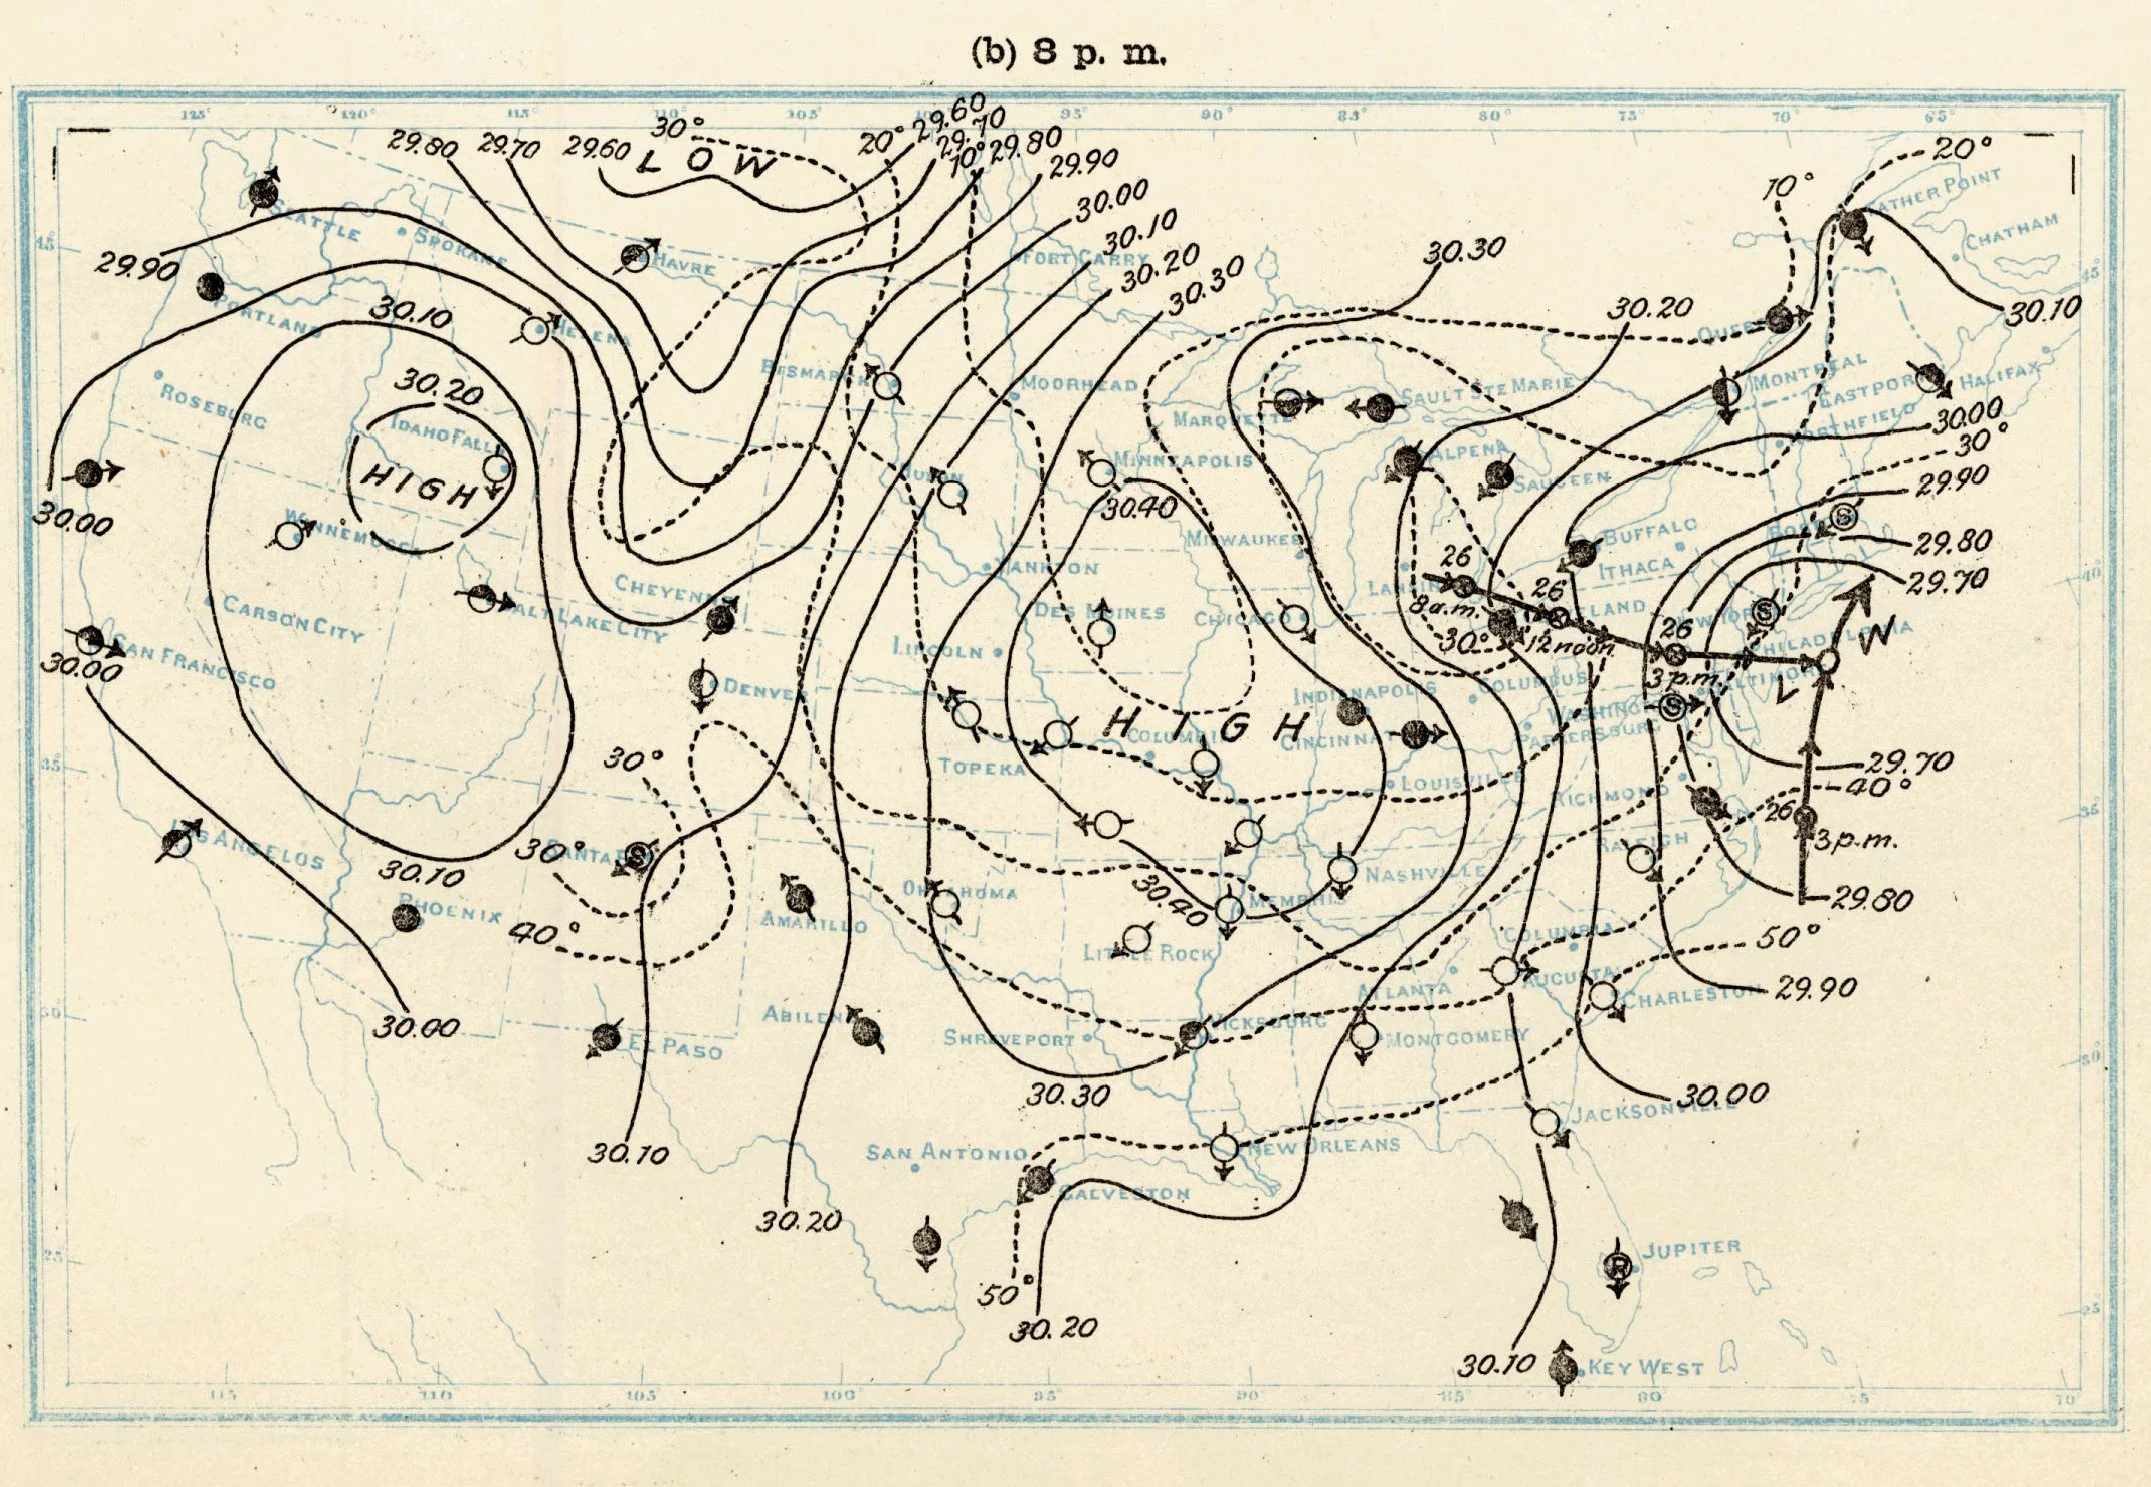 (b) 8 p. m.
125° 120° 115° 110° 105° 95° 90° 85° 80° 75° 70° 65°
29.80 29.70 29.60 30° LOW 20° 29.60
29.70
10° 29.80
29.90
30.00
30.10
30.20
30.30
30.30
30.20
10°
20°
FATHER POINT
CHATHAM
SEATTLE
SPOKANE
HAVRE
FORT GARRY
45
45
29.90
30.10
PORTLAND
30.10
HELENA
QUEBEC
BISMARCK
MOORHEAD
SAULT STE MARIE
MONTREAL
EASTPORT
HALIFAX
30.20
ROSEBURG
IDAHO FALLS
MARQUETTE
NORTHFIELD
30.00
30°
HIGH
HURON
MINNEAPOLIS
ALPENA
SAUGEEN
29.90
30.40
30.00
WINNEMUCCA
MILWAUKEE
BUFFALO
S
29.80
YANKTON
26
ITHACA
29.70
40
CHEYENNE
DES MOINES
CHICAGO
LANSING
8 a.m.
26
CLEVELAND
NEW YORK
S
CARSON CITY
SALT LAKE CITY
LINCOLN
30°
12 noon
26
PHILADELPHIA
W
SAN FRANCISCO
30.00
DENVER
INDIANAPOLIS
COLUMBUS
3 p.m.
BALTIMORE
L
WASHINGTON
S
PARKERSBURG
HIGH
COLUMBIA
CINCINNATI
35
30°
TOPEKA
LOUISVILLE
29.70
RICHMOND
40°
35
26
3 p.m.
LOS ANGELOS
30°
SANTA FE
S
RALEIGH
30.10
PHOENIX
OKLAHOMA
30.40
NASHVILLE
29.80
AMARILLO
MEMPHIS
40°
LITTLE ROCK
COLUMBIA
50°
AUGUSTA
ATLANTA
CHARLESTON
29.90
30
30.00
ABILENE
SHREVEPORT
VICKSBURG
MONTGOMERY
EL PASO
30
30.30
30.00
JACKSONVILLE
30.10
SAN ANTONIO
NEW ORLEANS
GALVESTON
30.20
25
R
JUPITER
50°
25
30.20
30.10
KEY WEST
115 110 105 100 95 90 85 80 75 70